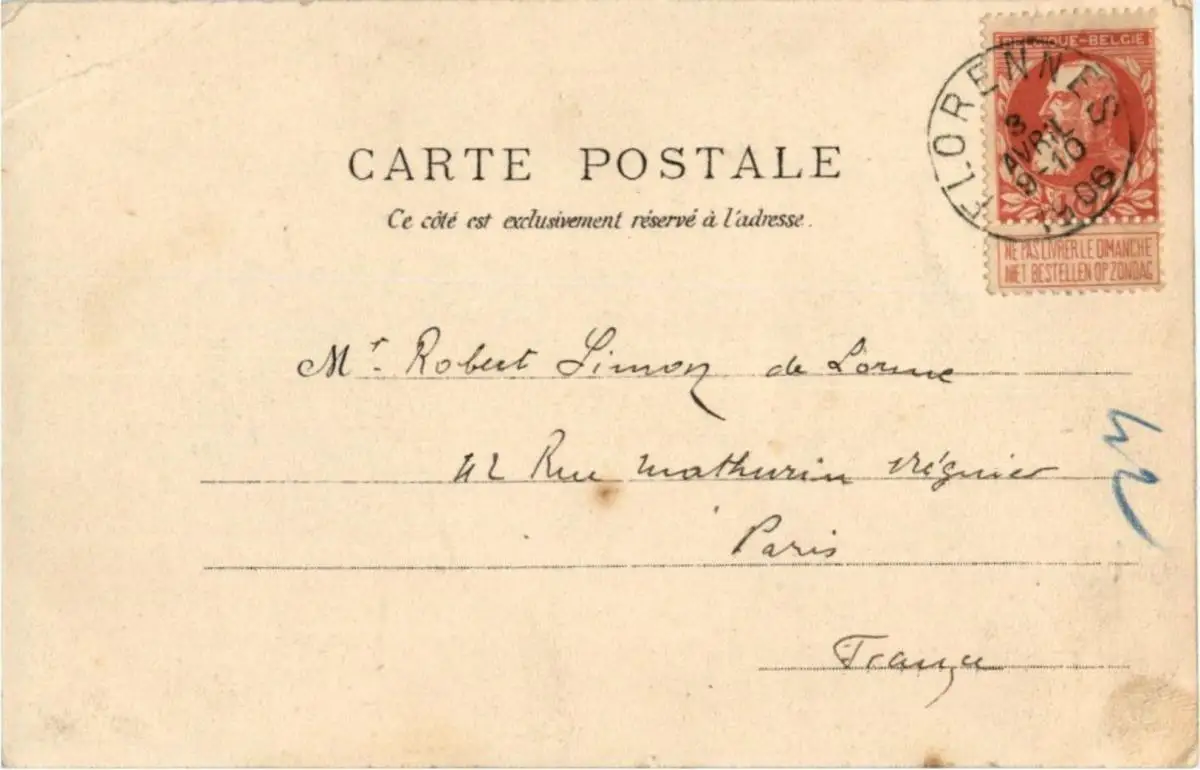 BELGIQUE-BELGIE
FLORENNES
3
AVRIL
9-10
1906
NE PAS LIVRER LE DIMANCHE
NIET BESTELLEN OP ZONDAG
CARTE POSTALE
Ce côté est exclusivement réservé à l'adresse.
Mr. Robert Simon de Lorme
42 Rue Mathurin Régnier
Paris
France
42